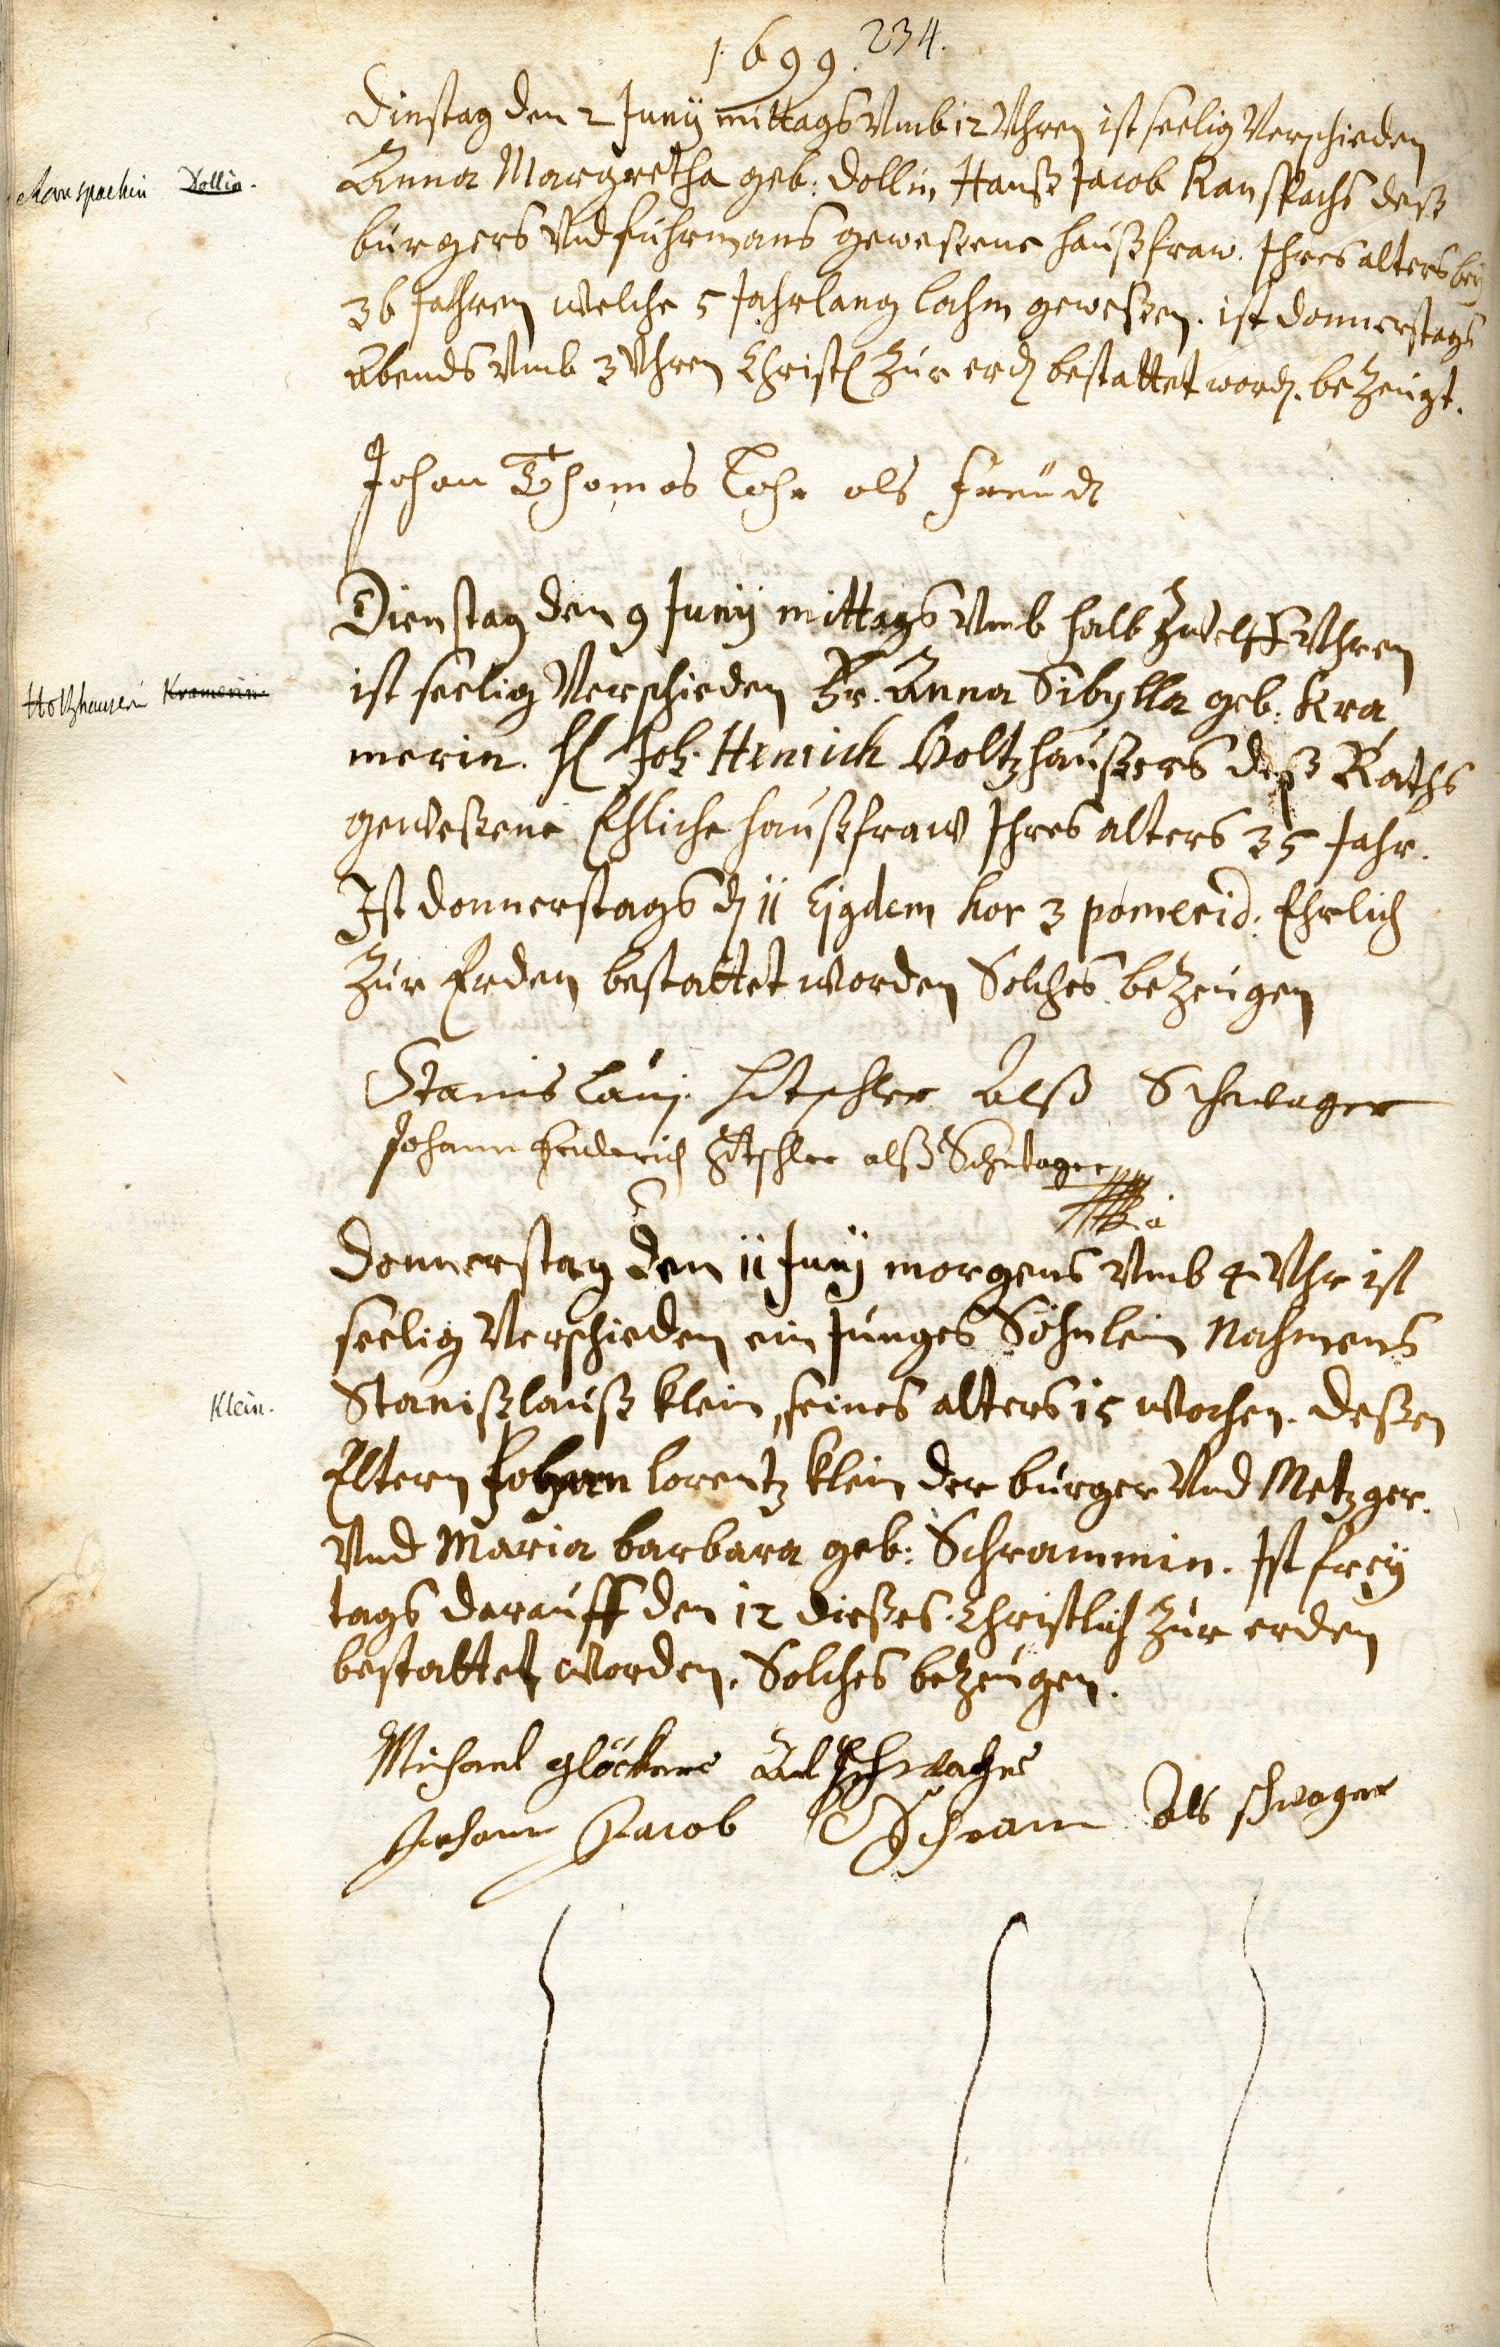 1699. 234.
Dinstag den 2 Junÿ mittags Vmb 12 Vhren ist seelig Verschieden
Ranspachin Dollin.
Anna Margretha geb: Dollin, Hanß Jacob Ranspachs deß
burgers Vnd fuhrmans geweßene haußfraw. Ihres alters beÿ
36 Jahren welche 5 Jahrlang lahm geweßen. ist donnerstags
Abends Vmb 3 Vhren Christl zur erd bestattet word. bezeugt.
Johan Thomas Lohr als freundt
Dienstag den 9 Junÿ mittags Vmb halb zwelff Vhren
ist seelig Verschieden Fr. Anna Sibylla geb: Kra
Holtzhauserin Kramerin
merin. H Joh: Henrich Holtzhaußers deß Raths
geweßene Ehliche haußfraw Ihres alters 35 Jahr.
Ist donnerstags d 11 Ejgdem hor 3 pomerid: Ehrlich
zur Erden bestattet worden Solches bezeugen
Stanislaus Schwager
Johann alß Schwager
Donnerstag den 11 Junÿ morgens Vmb 4 Vhr ist
seelig Verschieden ein Junges Söhnlein Nahmens
Klein.
Stanißlauß Klein, seines alters 15 wochen. deßen
Eltern Johann Lorentz Klein der burger Vnd Metzger.
Vnd Maria barbara geb: Schrammin. Ist freÿ
tags darauff den 12 dießes Christlich zur erden
bestattet worden. Solches bezeugen.
Michael glöckner Als schwager
Johann Jacob Schram Als schwager